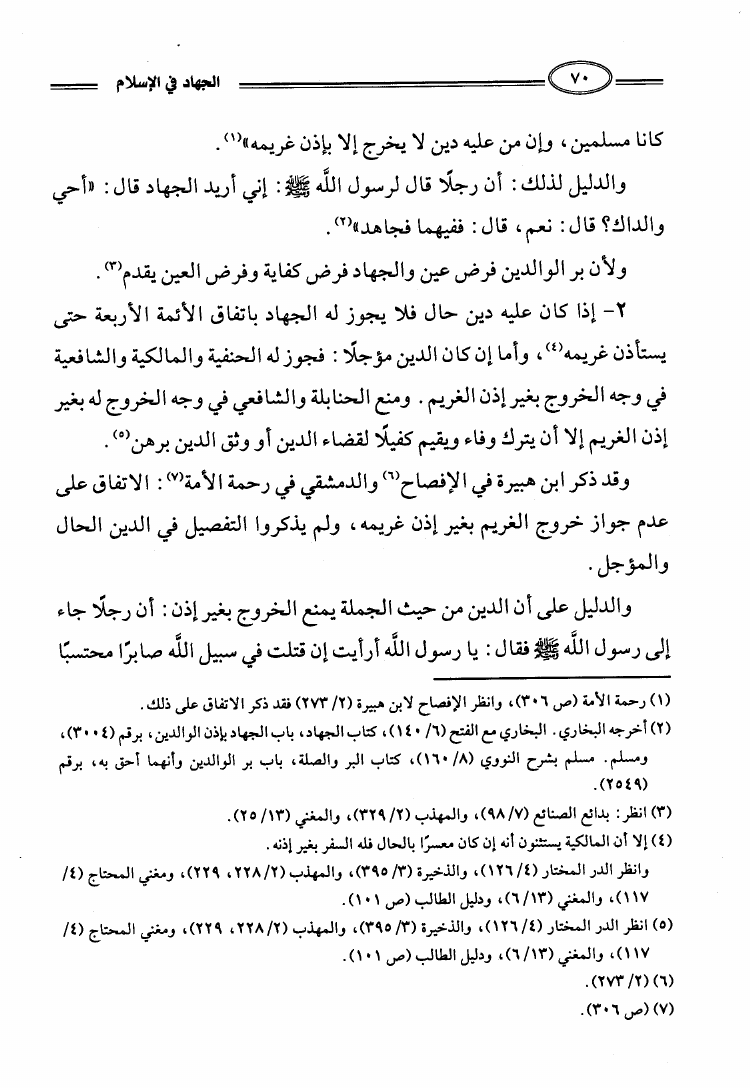 ٧٠ الجهاد في الإسلام
كانا مسلمين، وإن من عليه دين لا يخرج إلا بإذن غريمه»(١).
والدليل لذلك: أن رجلًا قال لرسول اللَّه ﷺ: إني أريد الجهاد قال: «أحي
والداك؟ قال: نعم، قال: ففيهما فجاهد»(٢).
ولأن بر الوالدين فرض عين والجهاد فرض كفاية وفرض العين يقدم(٣).
٢- إذا كان عليه دين حال فلا يجوز له الجهاد باتفاق الأئمة الأربعة حتى
يستأذن غريمه(٤)، وأما إن كان الدين مؤجلًا: فجوز له الحنفية والمالكية والشافعية
في وجه الخروج بغير إذن الغريم. ومنع الحنابلة والشافعي في وجه الخروج له بغير
إذن الغريم إلا أن يترك وفاء ويقيم كفيلًا لقضاء الدين أو وثق الدين برهن(٥).
وقد ذكر ابن هبيرة في الإفصاح(٦) والدمشقي في رحمة الأمة(٧): الاتفاق على
عدم جواز خروج الغريم بغير إذن غريمه، ولم يذكروا التفصيل في الدين الحال
والمؤجل.
والدليل على أن الدين من حيث الجملة يمنع الخروج بغير إذن: أن رجلًا جاء
إلى رسول اللَّه ﷺ فقال: يا رسول اللَّه أرأيت إن قتلت في سبيل اللَّه صابرًا محتسبًا
(١) رحمة الأمة (ص ٣٠٦)، وانظر الإفصاح لابن هبيرة (٢/ ٢٧٣) فقد ذكر الاتفاق على ذلك.
(٢) أخرجه البخاري. البخاري مع الفتح (٦/ ١٤٠)، كتاب الجهاد، باب الجهاد بإذن الوالدين، برقم (٣٠٠٤)،
ومسلم. مسلم بشرح النووي (٨/ ١٦٠)، كتاب البر والصلة، باب بر الوالدين وأنهما أحق به، برقم
(٢٥٤٩).
(٣) انظر: بدائع الصنائع (٧/ ٩٨)، والمهذب (٢/ ٣٢٩)، والمغني (١٣/ ٢٥).
(٤) إلا أن المالكية يستثنون أنه إن كان معسرًا بالحال فله السفر بغير إذنه.
وانظر الدر المختار (٤/ ١٢٦)، والذخيرة (٣/ ٣٩٥)، والمهذب (٢/ ٢٢٨، ٢٢٩)، ومغني المحتاج (٤/
١١٧)، والمغني (١٣/ ٦)، ودليل الطالب (ص ١٠١).
(٥) انظر الدر المختار (٤/ ١٢٦)، والذخيرة (٣/ ٣٩٥)، والمهذب (٢/ ٢٢٨، ٢٢٩)، ومغني المحتاج (٤/
١١٧)، والمغني (١٣/ ٦)، ودليل الطالب (ص ١٠١).
(٦) (٢/ ٢٧٣).
(٧) (ص ٣٠٦).